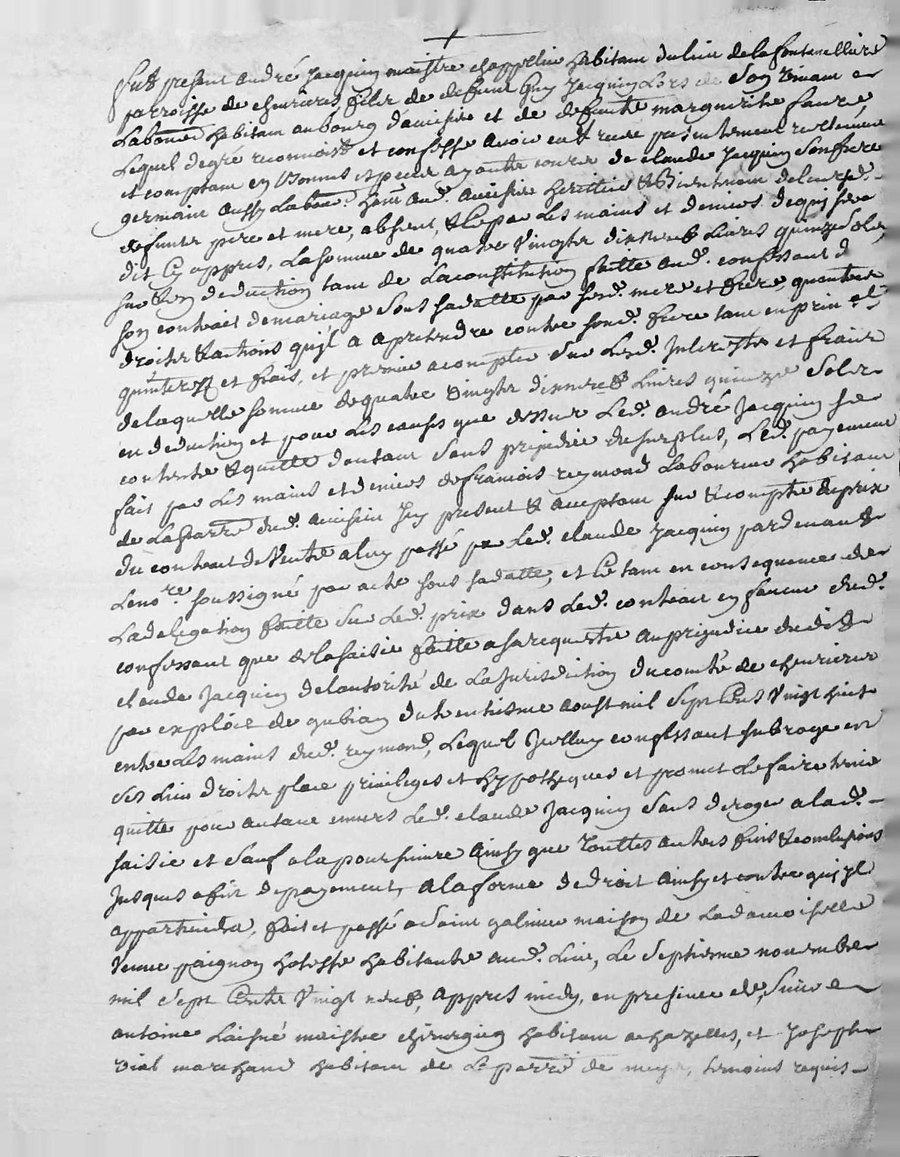 Fut present andré Jacquin maistre chappellier habitant du lieu de la fontanelliere
parroisse de chevrieres filz de deffunt Guy Jacquin Lors de Son vivant
Laboureur habitant au bourg d'aveisieu et de deffunte margueritte faure,
Lequel de gré reconnoist et confesse avoir eu et receu presentement reellement
et comptant en Bonnes especes ayants cours de claude Jacquin Son frere
germain aussy Labour. hant. aud. aveisieu heritier & Bientenant de leursd.
deffunts pere et mere, absent, & Ce par Les mains et deniers de qui sera
dit Cy appres, La somme de quatre Vingts dixneuf Livres quinze Sols,
sur & en deduction tant de La constitution faitte aud. confessant d
son contrait de mariage Sous sa datte par sesd. mere et frere, que autres
droits & actions qu'jl a a pretendre contre sond. frere tant en prin al.
qu'interests et frais, et premier acompte sur Lesd. Jnterests et frais
de laquelle somme de quatre Vingts dixneuf Livres quinze Sols
en deduction et pour les causes que dessus Led. andré Jacquin se
contente & quitte d'autant Sans prejudice du surplus, Led. payement
fait par Les mains et deniers de francois reymond Laboureur habitant
de La parre dud. aveisieu Jcy present & acceptant sur & compte du prix
du contrait de Vente a luy passé par Led. claude Jacquin pardevant
Le nore. soussigné par acte sous sa datte, et Ce tant en consequence de
La delegation faitte sur Led. prix dans Led. contrait en faveur dud.
confessant que de la saisie faitte a sa requeste au prejudice dudit
claude Jacquin de l'autorité de La Jurisdiction du comté de chevrieres
par exploit de gubian du trentiesme aoust mil Sept Cens Vingt huit
entre Les mains dud. reymond, Lequel Jcelluy confessant subroge en
ses Lieu droits place privileges et hypotheques et promet Le faire tenir
quitte pour autant envers Led. claude Jacquin Sans deroger a lad.
saisie et Sauf a la poursuivre ainsy que Touttes autres fins & conclusions
Jusques a fin de payement, a la forme de droit ainsy et contre qu'jl
appartiendra, fait et passé a Saint galmier maison de La damoiselle
Veuve paignon hotesse habitante aud. Lieu, Le Septiesme novembre
mil Sept Cents Vingt neuf, appres midy, en presence de, Sieur
antoine Laisné maistre chirurgien habitant a chazelles, et Joseph
vial marchand habitant de La parre de meys, temoins requis